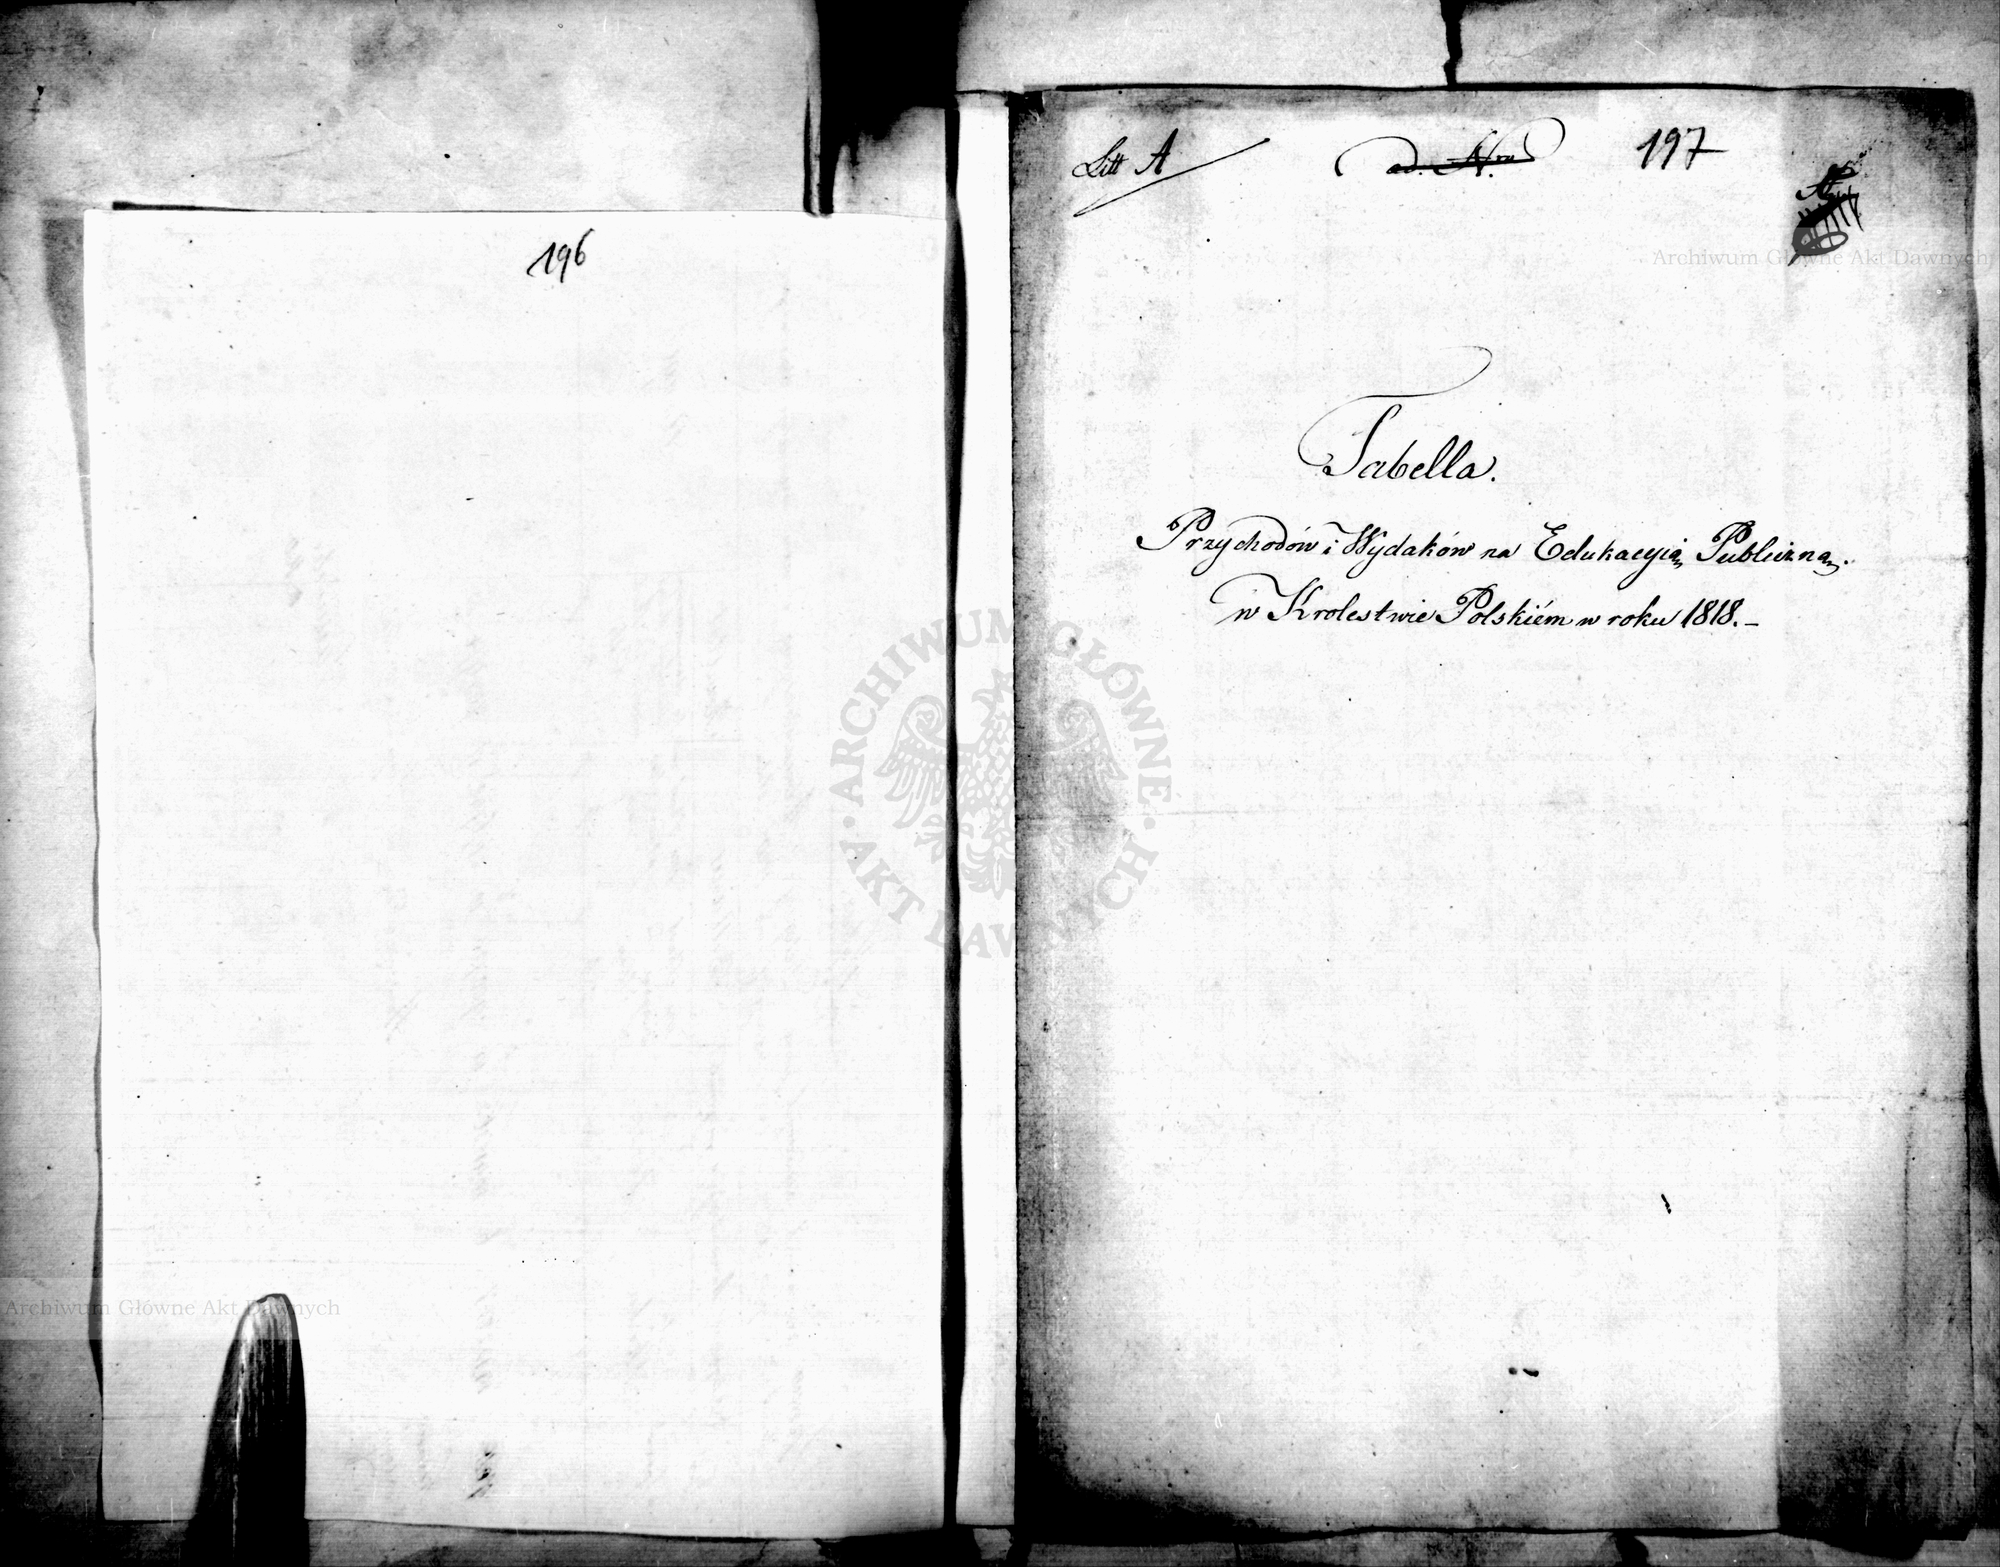 196
Litt A
ad. Nrm
197
Tabella.
Przychodów i Wydaków na Edukacyią Publiczną.
w Krolestwie Polskiém w roku 1818. –
Archiwum Główne Akt Dawnych
ARCHIWUM GŁÓWNE AKT DAWNYCH
Archiwum Główne Akt Dawnych